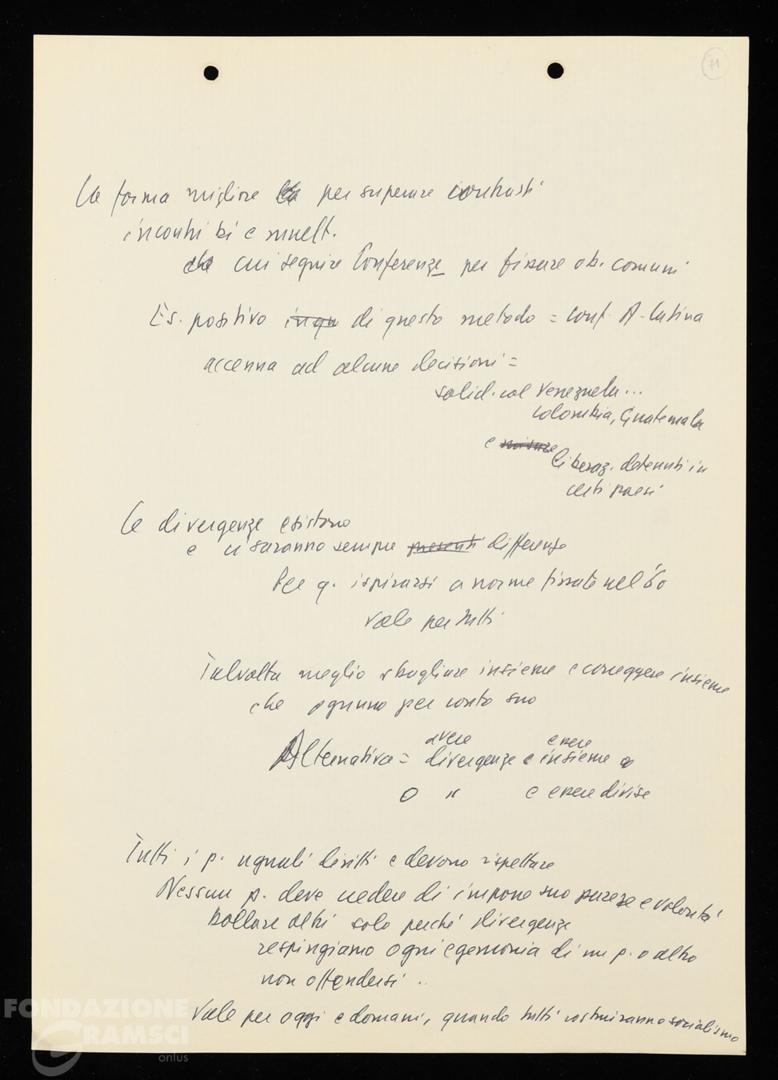 71
La forma migliore per superare contrasti
incontri bi e mult.
cui seguire Conferenze per fissare ob. comuni
Es. positivo di questo metodo = conf. A. Latina
accenna ad alcune decisioni =
solid. col Venezuela...
Colombia, Guatemala
e
liberaz. detenuti in
certi paesi
Le divergenze esistono
e ci saranno sempre presenti differenze
Per q. ispirarsi a norme fissate nel 60
Vale per tutti
Talvolta meglio sbagliare insieme e correggere insieme
che ognuno per conto suo
avere essere
Alternativa = divergenze e insieme
o " e essere divise
Tutti i p. uguali diritti e devono rispettare
Nessun p. deve credere di imporre suo parere e volontà
bollare altri solo perché divergenze
respingiamo ogni egemonia di un p. o altro
non offendersi..
Vale per oggi e domani, quando tutti costruiranno socialismo
FONDAZIONE
GRAMSCI
onlus